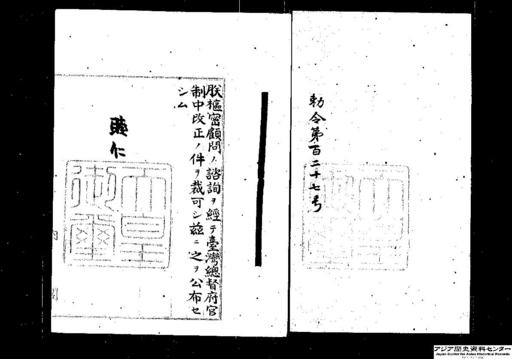 勅令第百二十七号
朕樞密顧問ノ諮詢ヲ經テ臺灣總督府官
制中改正ノ件ヲ裁可シ茲ニ之ヲ公布セ
シム
睦仁
天皇
御璽
アジア歴史資料センター
Japan Center for Asian Historical Records